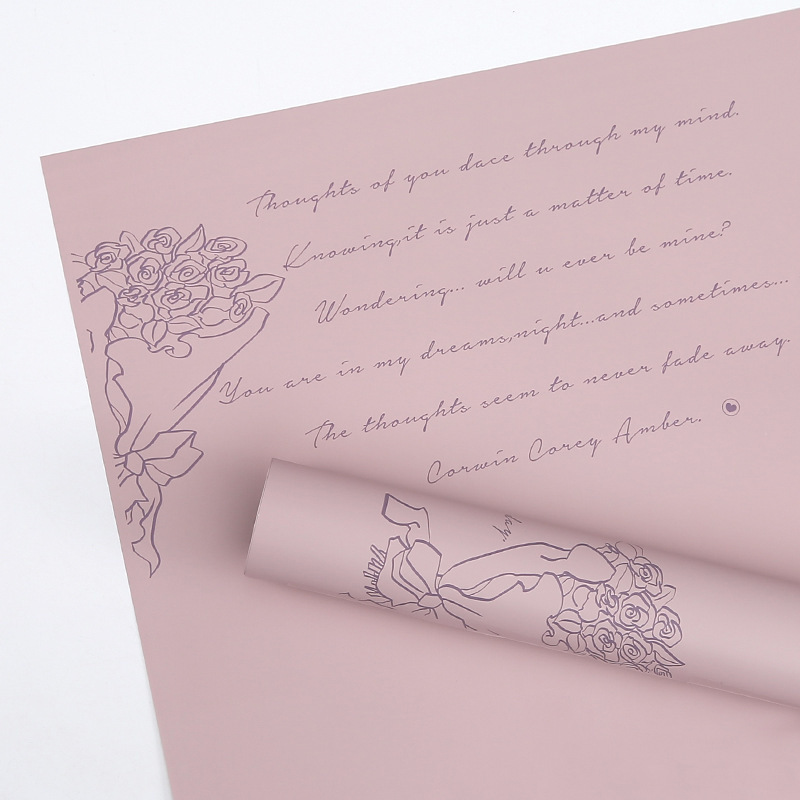 Thoughts of you dace through my mind.
Knowing,it is just a matter of time.
Wondering... will u ever be mine?
You are in my dreams,night...and sometimes...
The thoughts seem to never fade away.
Corwin Corey Amber.